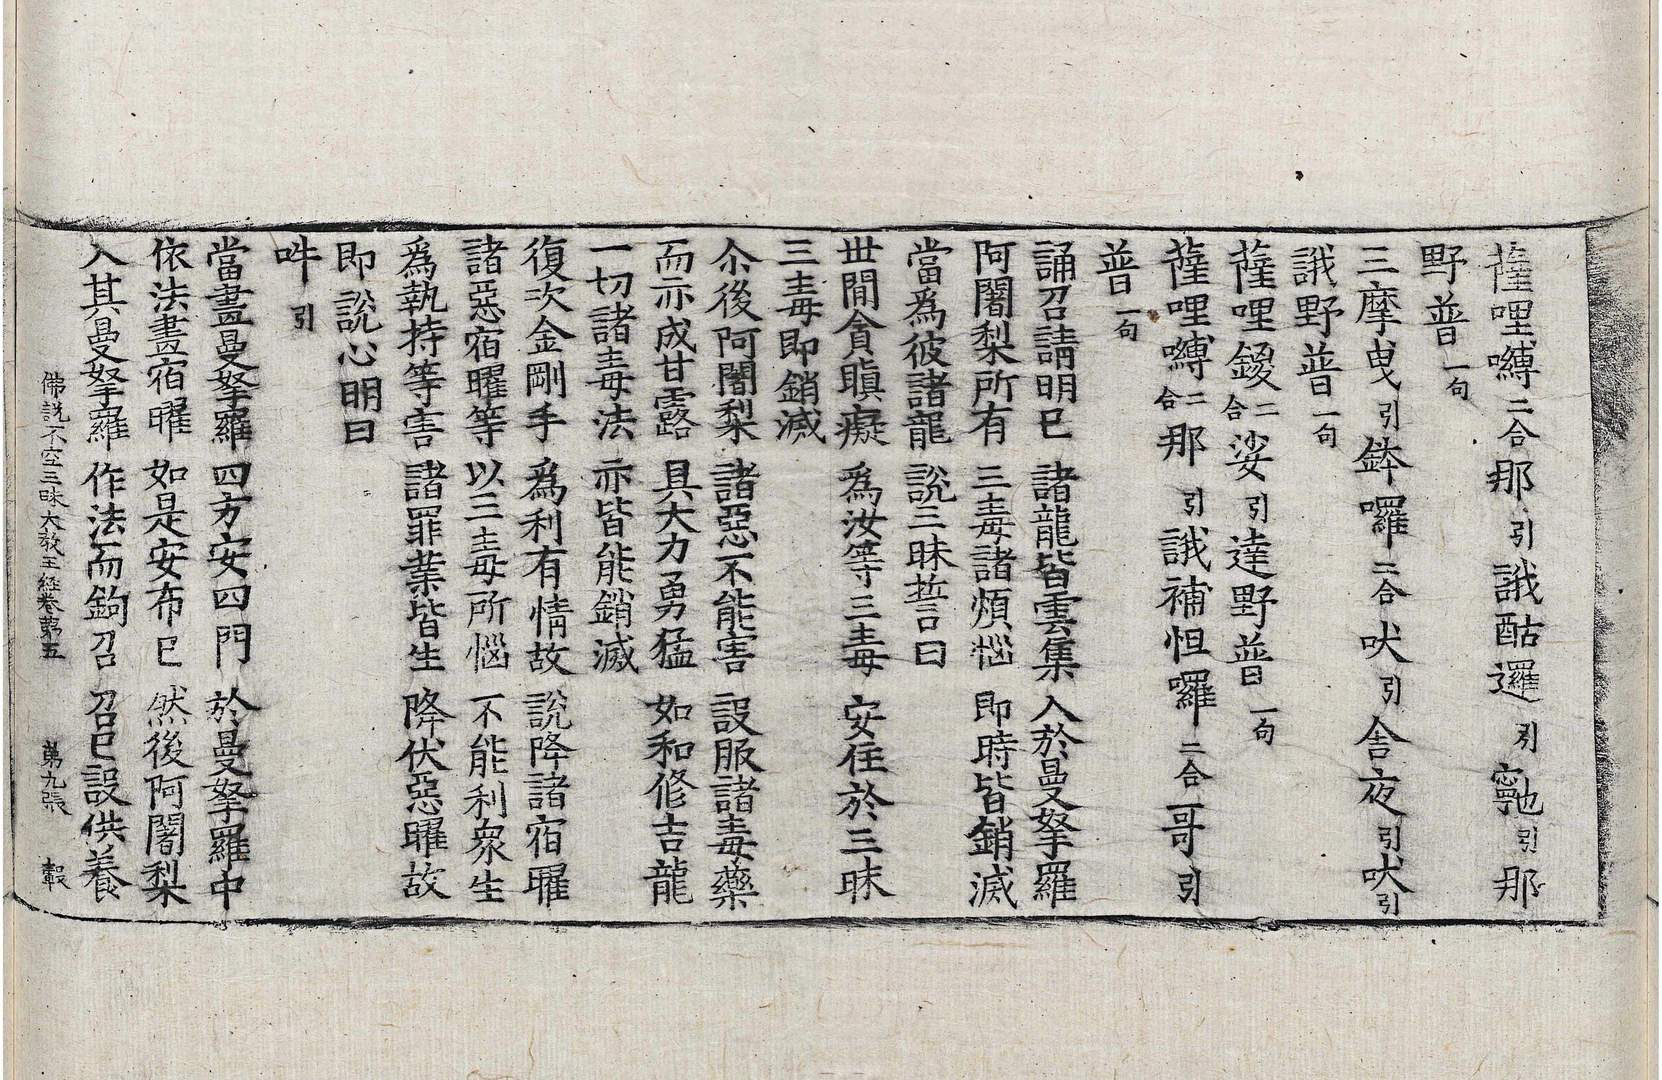 薩哩嚩二合那引誐酤邏引𭌆引那
野普一句
三摩曳引鉢囉二合吠引舍夜引吠引
誐野普一句
薩哩鑁二合娑引達野普一句
薩哩嚩二合那引誐補怛囉二合哥引
普一句
誦召請明巳 諸龍皆雲集 入於曼拏羅
阿闍梨所有 三毒諸煩惱 即時皆銷滅
當爲彼諸龍 說三昧誓言曰
世間貪瞋癡 爲汝等三毒 安住於三昧
三毒即銷滅
尒後阿闍梨 諸惡不能害 設服諸毒藥
而亦成甘露 具大力勇猛 如和修吉龍
一切諸毒法 亦皆能銷滅
復次金剛手 爲利有情故 說降諸宿曜
諸惡宿曜等 以三毒所惱 不能利衆生
爲執持等害 諸罪業皆生 降伏惡曜故
即說心明曰
吽引
當畫曼拏羅 四方安四門 於曼拏羅中
依法畫宿曜 如是安布巳 然後阿闍梨
入其曼拏羅 作法而鉤召 召巳設供養
佛說不空三昧大教王經卷第五 第九張 轂